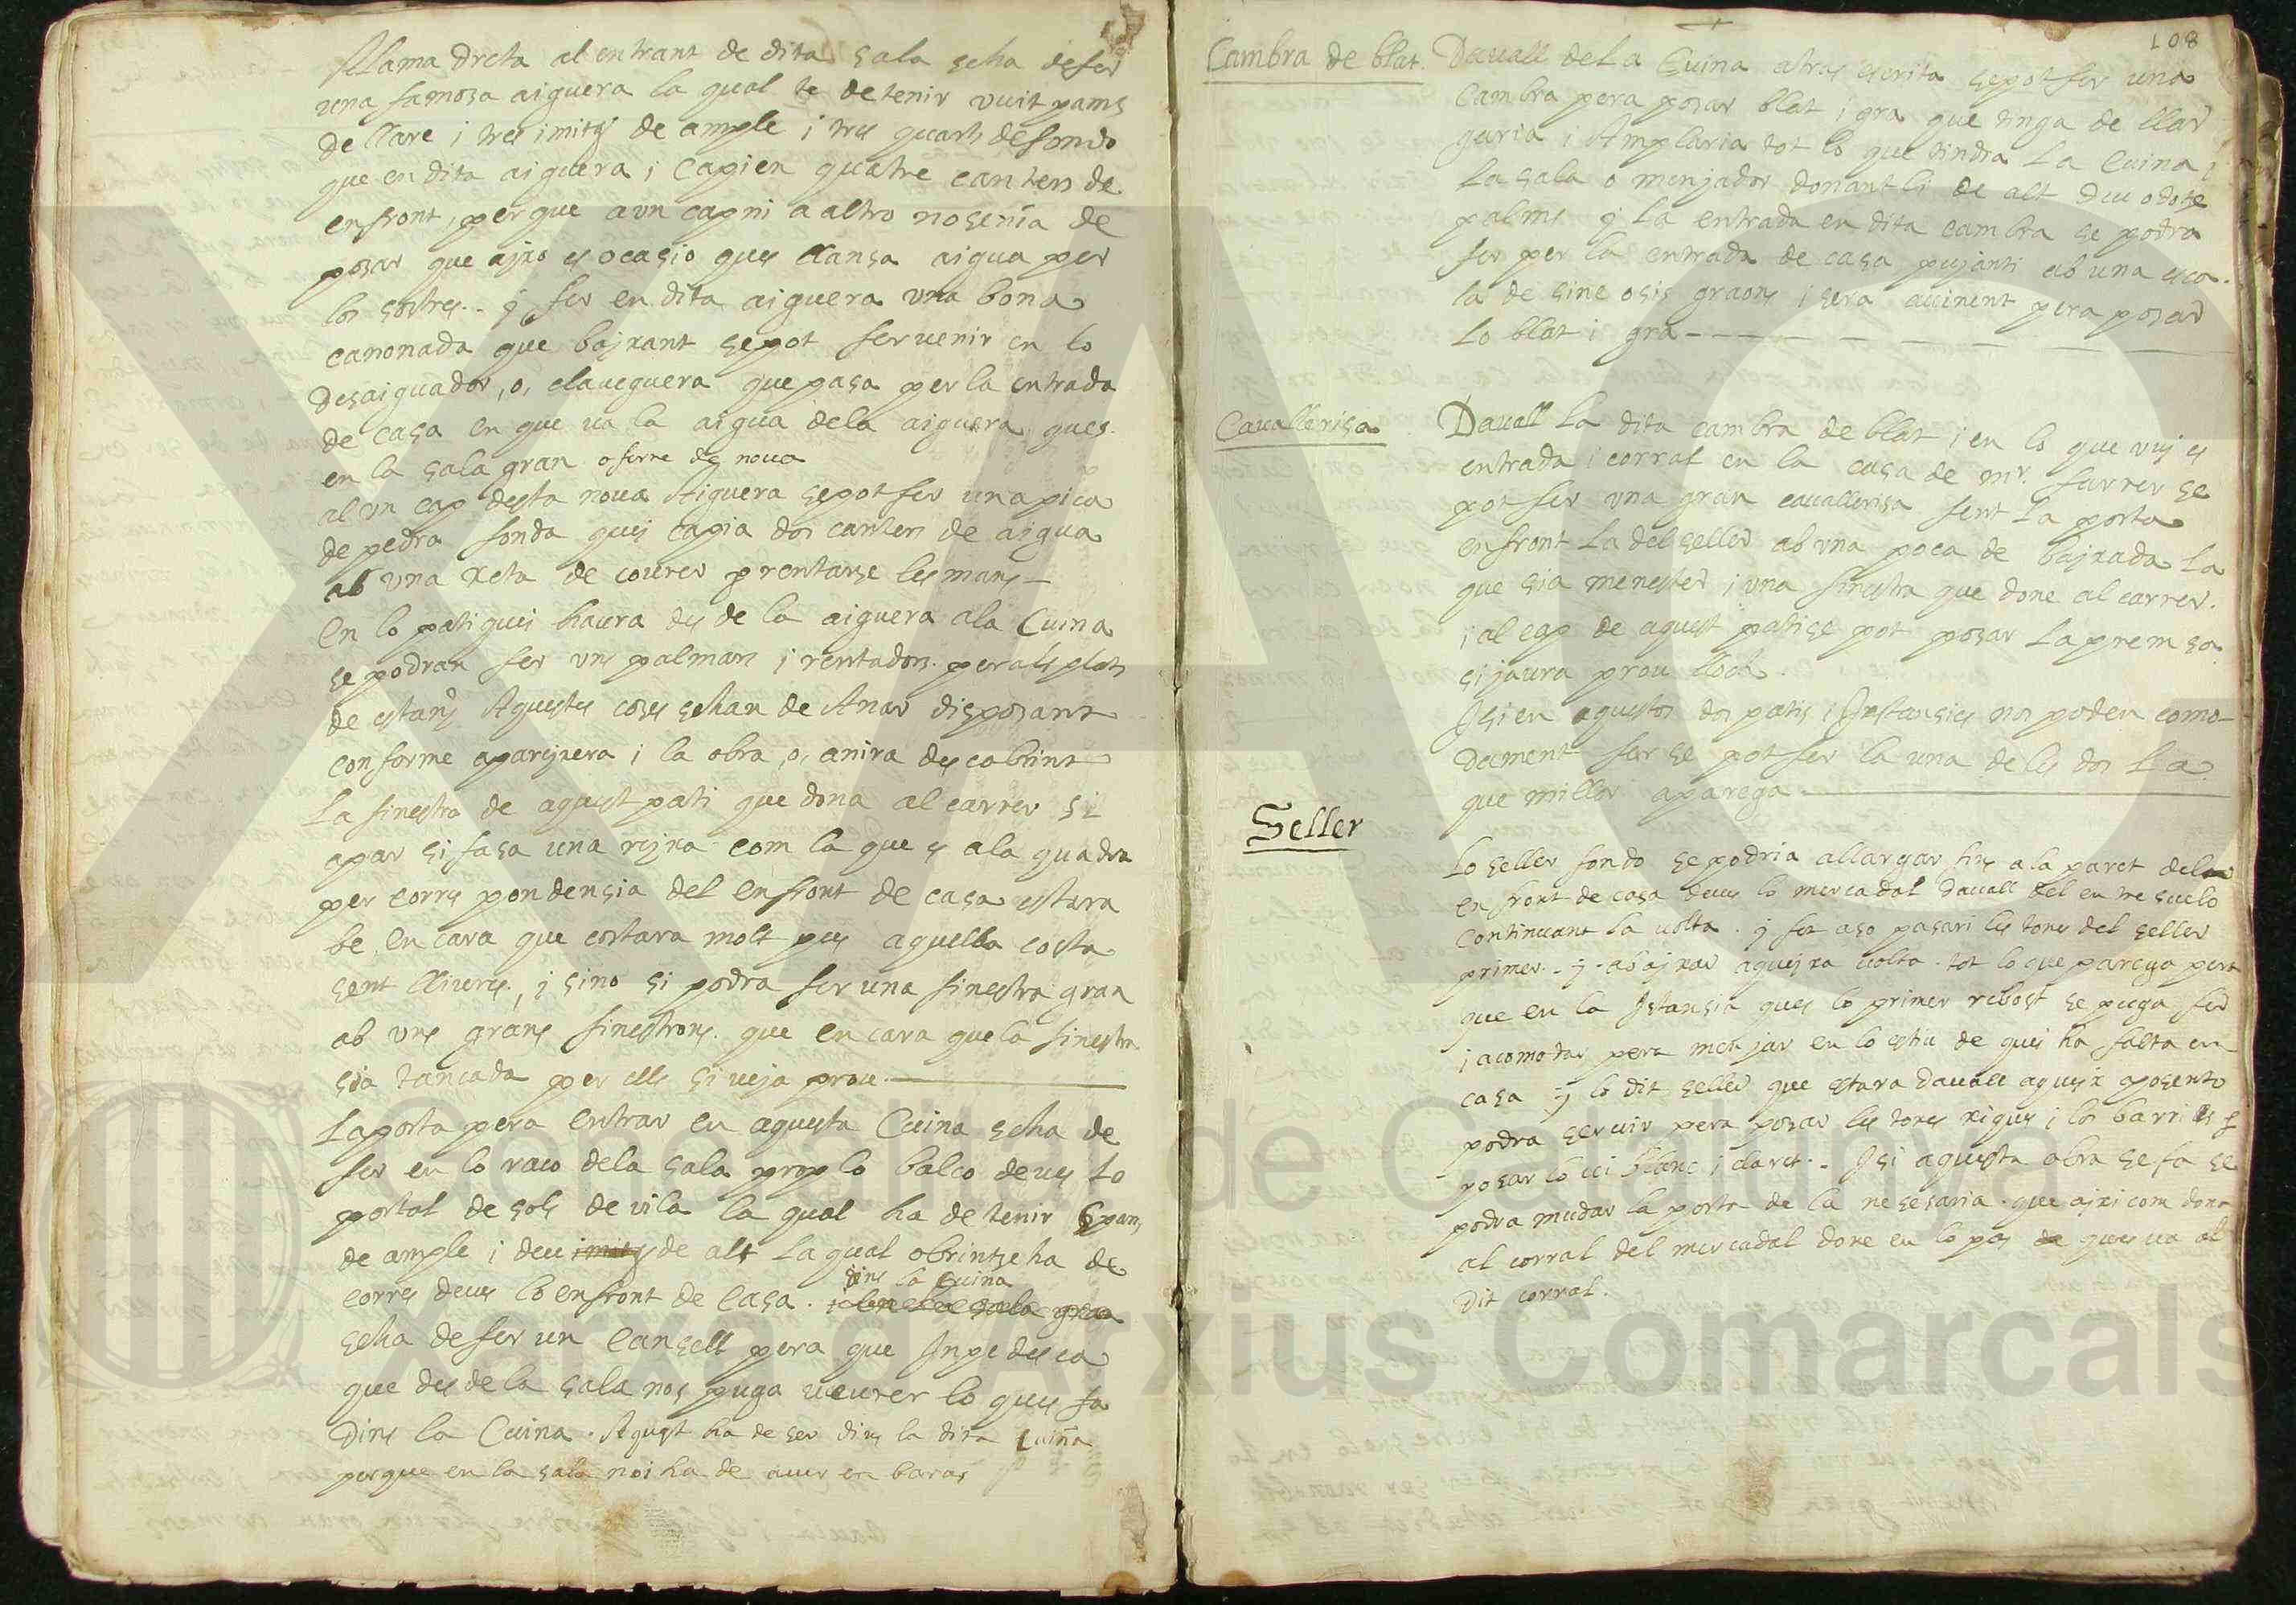 Alama dreta al entrant de dita sala scha defer
una famosa aiguera la qual te detenir vuit pams
de llarc i tres imitg de ample i tres quarts defondo
que en dita aiguera i capien quatre canters de
enfront, perque a un capni a altro nosenia de
posar que ajxo es ocasio ques llansa aigua per
los sostres.. y fer en dita aiguera una bona
canonada que bajxant sepot fer venir en lo
Desaiguador, o, claueguera que pasa per la entrada
de casa en que ua la aigua dela aiguera ques
en la sala gran o ferne de noua
al un cap desta noua Aiguera sepot fer una pica
de pedra fonda quej capia dos canters de aigua
ab una xeta de courer p rentarse les mans
En lo pati quei haura des de la aiguera ala Cuina
se podran fer uns palmars i rentadors perals plats
de estany Aquestes coses sehan de Anar disposant
conforme aparexera i la obra, o, anira descobrint
La finestra de aquest pati que dona al carrer si
apar si fasa una rejxa com la que es ala quadra
per corres pondensia del enfront de casa estara
be, encara que costara molt pus aquella costa
sent lliures, i sino si podra fer una finestra gran
ab uns grans finestrons. que encara que la finestra
sia tancada per ells si ueja prou
Laporta pera entrar en aquesta Cuina scha de
fer en lo raco dela sala prop lo balco deues lo
portal de sols de vila la qual ha de tenir 6 pams
de ample i deu imitg de alt La qual obrintse ha de
corres deues lo enfront de casa. dins la Cuina
scha defer un Cansell pera que Inpedesca
que des de la sala nos puga ueurer lo ques fa
Dins la Cuina. Aquest ha de ser dins la dita Cuina
perque en la sala noi ha de auer en baras
108
Cambra de blat.
Dauall dela Cuina atras escrita sepot fer una
Cambra pera posar blat i gra que tinga de llar
garia i Amplaria tot lo que tindra La Cuina i
La sala o menjador donantli de alt deu o dotse
palms y La entrada en dita cambra se podra
fer per la entrada de casa pujanti ab una esca
la de sinc o sis graons i sera auinent pera posar
Lo blat i gra
Caualleriса
Dauall La dita cambra de blat i en lo que vuj es
entrada i corral en la casa de mr. ferrer se
pot fer una gran caualleriза fent la porta
enfront La del seller ab una poca de bajxada La
que sia menester i una finestra que done al carrer.
i al cap de aquest pati se pot posar La premsa
si jaura prou lloch.
Isi en aquestos dos patis i Instansies nos poden como
dament fer se pot fer la una de les dos La
que millor aparega
Seller
Lo seller fondo se podria allargar fins a la paret del
en front de casa deues lo mercadal dauall del entresuelo
continuant la uolta. y fer aso pasari les tones del seller
primer. y abajxar aquejxa uolta. tot lo que parega pera
que en la Istansia ques lo primer rebost se puga fer
i acomodar pera menjar en lo estiu de quei ha falta en
casa y lo dit seller que estara dauall aqueix aposento
podra seruir pera posar les tones xiques i los barrils p
posar lo ui blanc i claret. Isi aquesta obra se fa se
podra mudar la porta de la nesesaria. que ajxi com dona
al corral del mercadal done en lo pas ques ua al
dit corral.